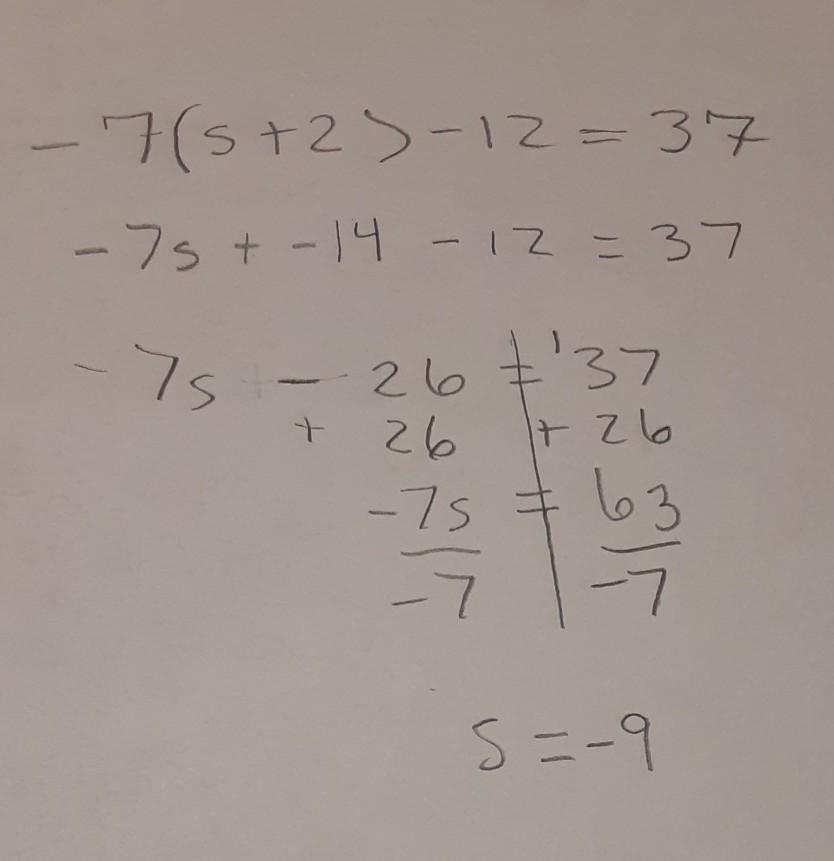 -7(s+2)-12=37
-7s + -14 -12 = 37
-7s - 26 = '37
+ 26 + 26
-7s = 63
-7 -7
s=-9